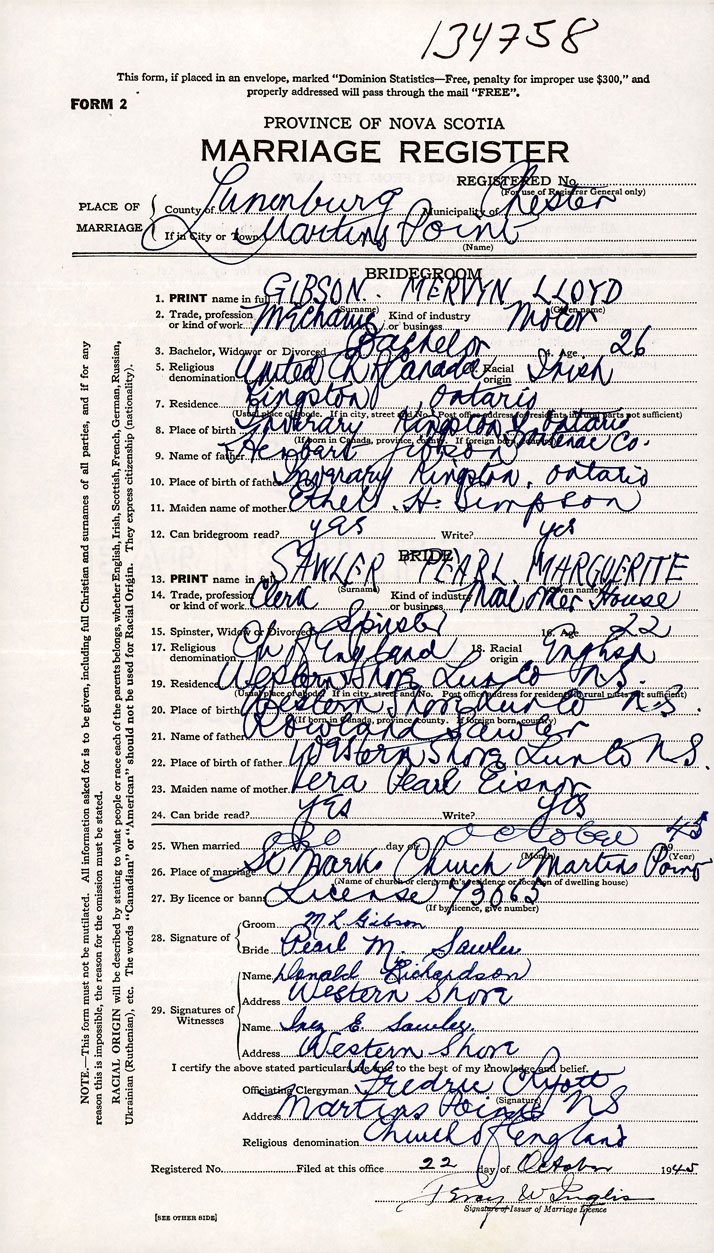 134758
This form, if placed in an envelope, marked "Dominion Statistics—Free, penalty for improper use $300," and
properly addressed will pass through the mail "FREE".
FORM 2
PROVINCE OF NOVA SCOTIA
MARRIAGE REGISTER
REGISTERED No.
(For use of Registrar General only)
PLACE OF MARRIAGE
County of Lunenburg Municipality of Chester
If in City or Town Martins Point
(Name)
BRIDEGROOM
1. PRINT name in full GIBSON. MERVYN LLOYD
(Surname) (Given name)
2. Trade, profession or kind of work Mechanic Kind of industry or business Motor
3. Bachelor, Widower or Divorced Bachelor 4. Age 26
5. Religious denomination United Ch of Canada Racial origin Irish
7. Residence Kingston, Ontario
(Usual place of abode. If in city, street and No. Post office address for residents in rural parts not sufficient)
8. Place of birth Inverary Kingston Ontario
(If born in Canada, province, county. If foreign born, country)
Co.
9. Name of father Gibson
10. Place of birth of father Inverary Kingston, Ontario
11. Maiden name of mother Ethel H. Simpson
12. Can bridegroom read? yes Write? yes
BRIDE
13. PRINT name in full SAWLER PEARL MARGUERITE
(Surname) (Given name)
14. Trade, profession or kind of work Clerk Kind of industry or business Mail Order House
15. Spinster, Widow or Divorced Spinster 16. Age 22
17. Religious denomination Ch of England 18. Racial origin English
19. Residence Western Shore Lun Co N.S.
(Usual place of abode? If in city, street and No. Post office address for residents in rural parts not sufficient)
20. Place of birth Western Shore Lun Co N.S.
(If born in Canada, province county. If foreign born, country)
21. Name of father Rowland Sawler
22. Place of birth of father Western Shore Lun Co N.S.
23. Maiden name of mother Vera Pearl Eisnor
24. Can bride read? yes Write? yes
25. When married day of October 1945
(Month) (Year)
26. Place of marriage St Marks Church Martins Point
(Name of church or clergyman's residence or location of dwelling house)
27. By licence or banns License 73063
(If by licence, give number)
28. Signature of
Groom M L Gibson
Bride Pearl M. Sawler
29. Signatures of Witnesses
Name Donald Richardson
Address Western Shore
Name Inez E. Sawler
Address Western Shore
I certify the above stated particulars are true to the best of my knowledge and belief.
Officiating Clergyman Fredric
(Signature)
Address Martins Point NS
Religious denomination Church of England
Registered No. Filed at this office 22 day of October 1945
Percy W Inglis
Signature of Issuer of Marriage Licence
[SEE OTHER SIDE]
NOTE.—This form must not be mutilated. All information asked for is to be given, including full Christian and surnames of all parties, and if for any
reason this is impossible, the reason for the omission must be stated.
RACIAL ORIGIN will be described by stating to what people or race each of the parents belongs, whether English, Irish, Scottish, French, German, Russian,
Ukrainian (Ruthenian), etc. The words "Canadian" or "American" should not be used for Racial Origin. They express citizenship (nationality).